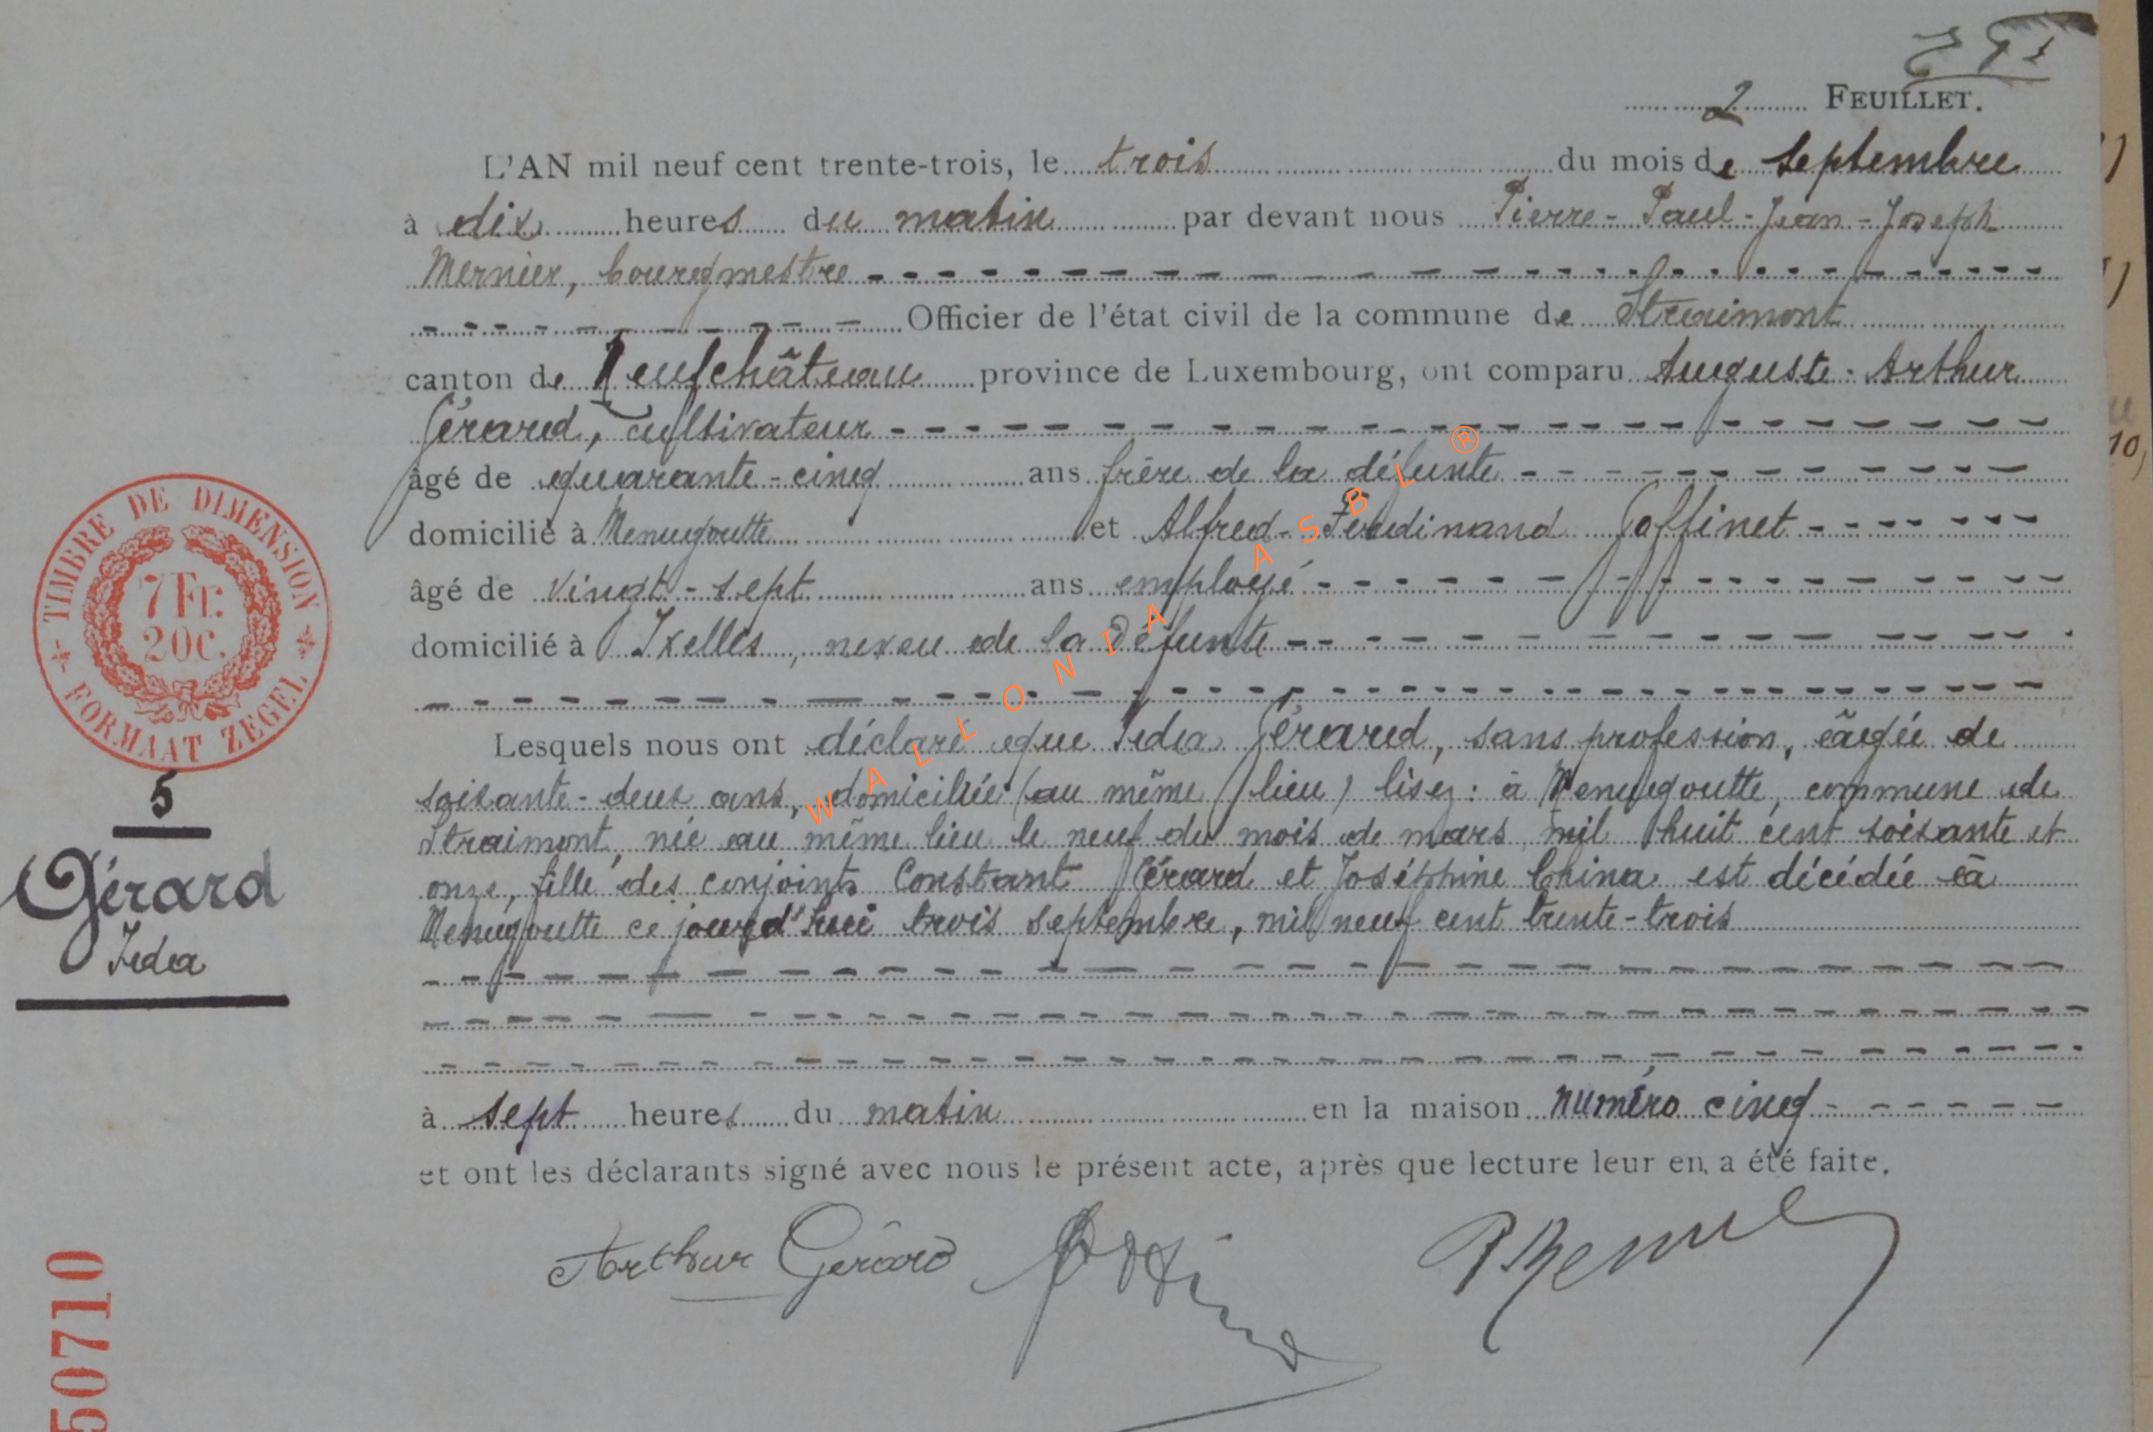 2 FEUILLET.
L'AN mil neuf cent trente-trois, le trois du mois de septembre
à dix heures du matin par devant nous Pierre-Paul-Jean-Joseph
Mernier, bourgmestre
Officier de l'état civil de la commune de Straimont
canton de Neufchâteau province de Luxembourg, ont comparu Auguste-Arthur
Gérard, cultivateur
âgé de quarante-cinq ans frère de la défunte
domicilié à Menugoutte et Alfred-Ferdinand Goffinet
âgé de vingt-sept ans employé
domicilié à Ixelles, neveu de la défunte
Lesquels nous ont déclaré que Ieda Gérard, sans profession, âgée de
soixante-deux ans, domiciliée (au même lieu) lisez: à Menugoutte, commune de
Straimont, née au même lieu le neuf du mois de mars mil huit cent soixante et
onze, fille des conjoints Constant Gérard et Joséphine China est décédée à
Menugoutte ce jourd'hui trois septembre, mil neuf cent trente-trois
à sept heures du matin en la maison numéro cinq
et ont les déclarants signé avec nous le présent acte, après que lecture leur en a été faite.
Arthur Gérard
TIMBRE DE DIMENSION
7 Fr.
20c.
FORMAAT ZEGEL
5
Gérard
Ieda
50710
WALLONIA ASBL ®